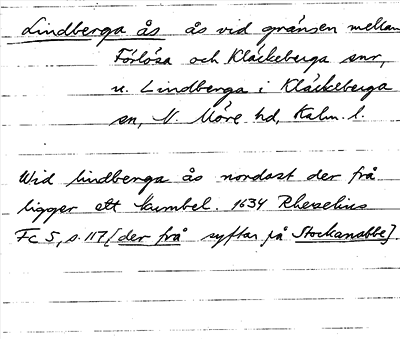 Lindberga ås ås vid gränsen mellan
Förlösa och Kläckeberga snr,
u. Lindberga i Kläckeberga
sn, N. Möre hd, Kalm. l.
Wid lindberga ås nordast der frå
ligger ett kumbel. 1634 Rhezelius
Fc 5, s. 117 [der frå syftar på Stockanabbe].